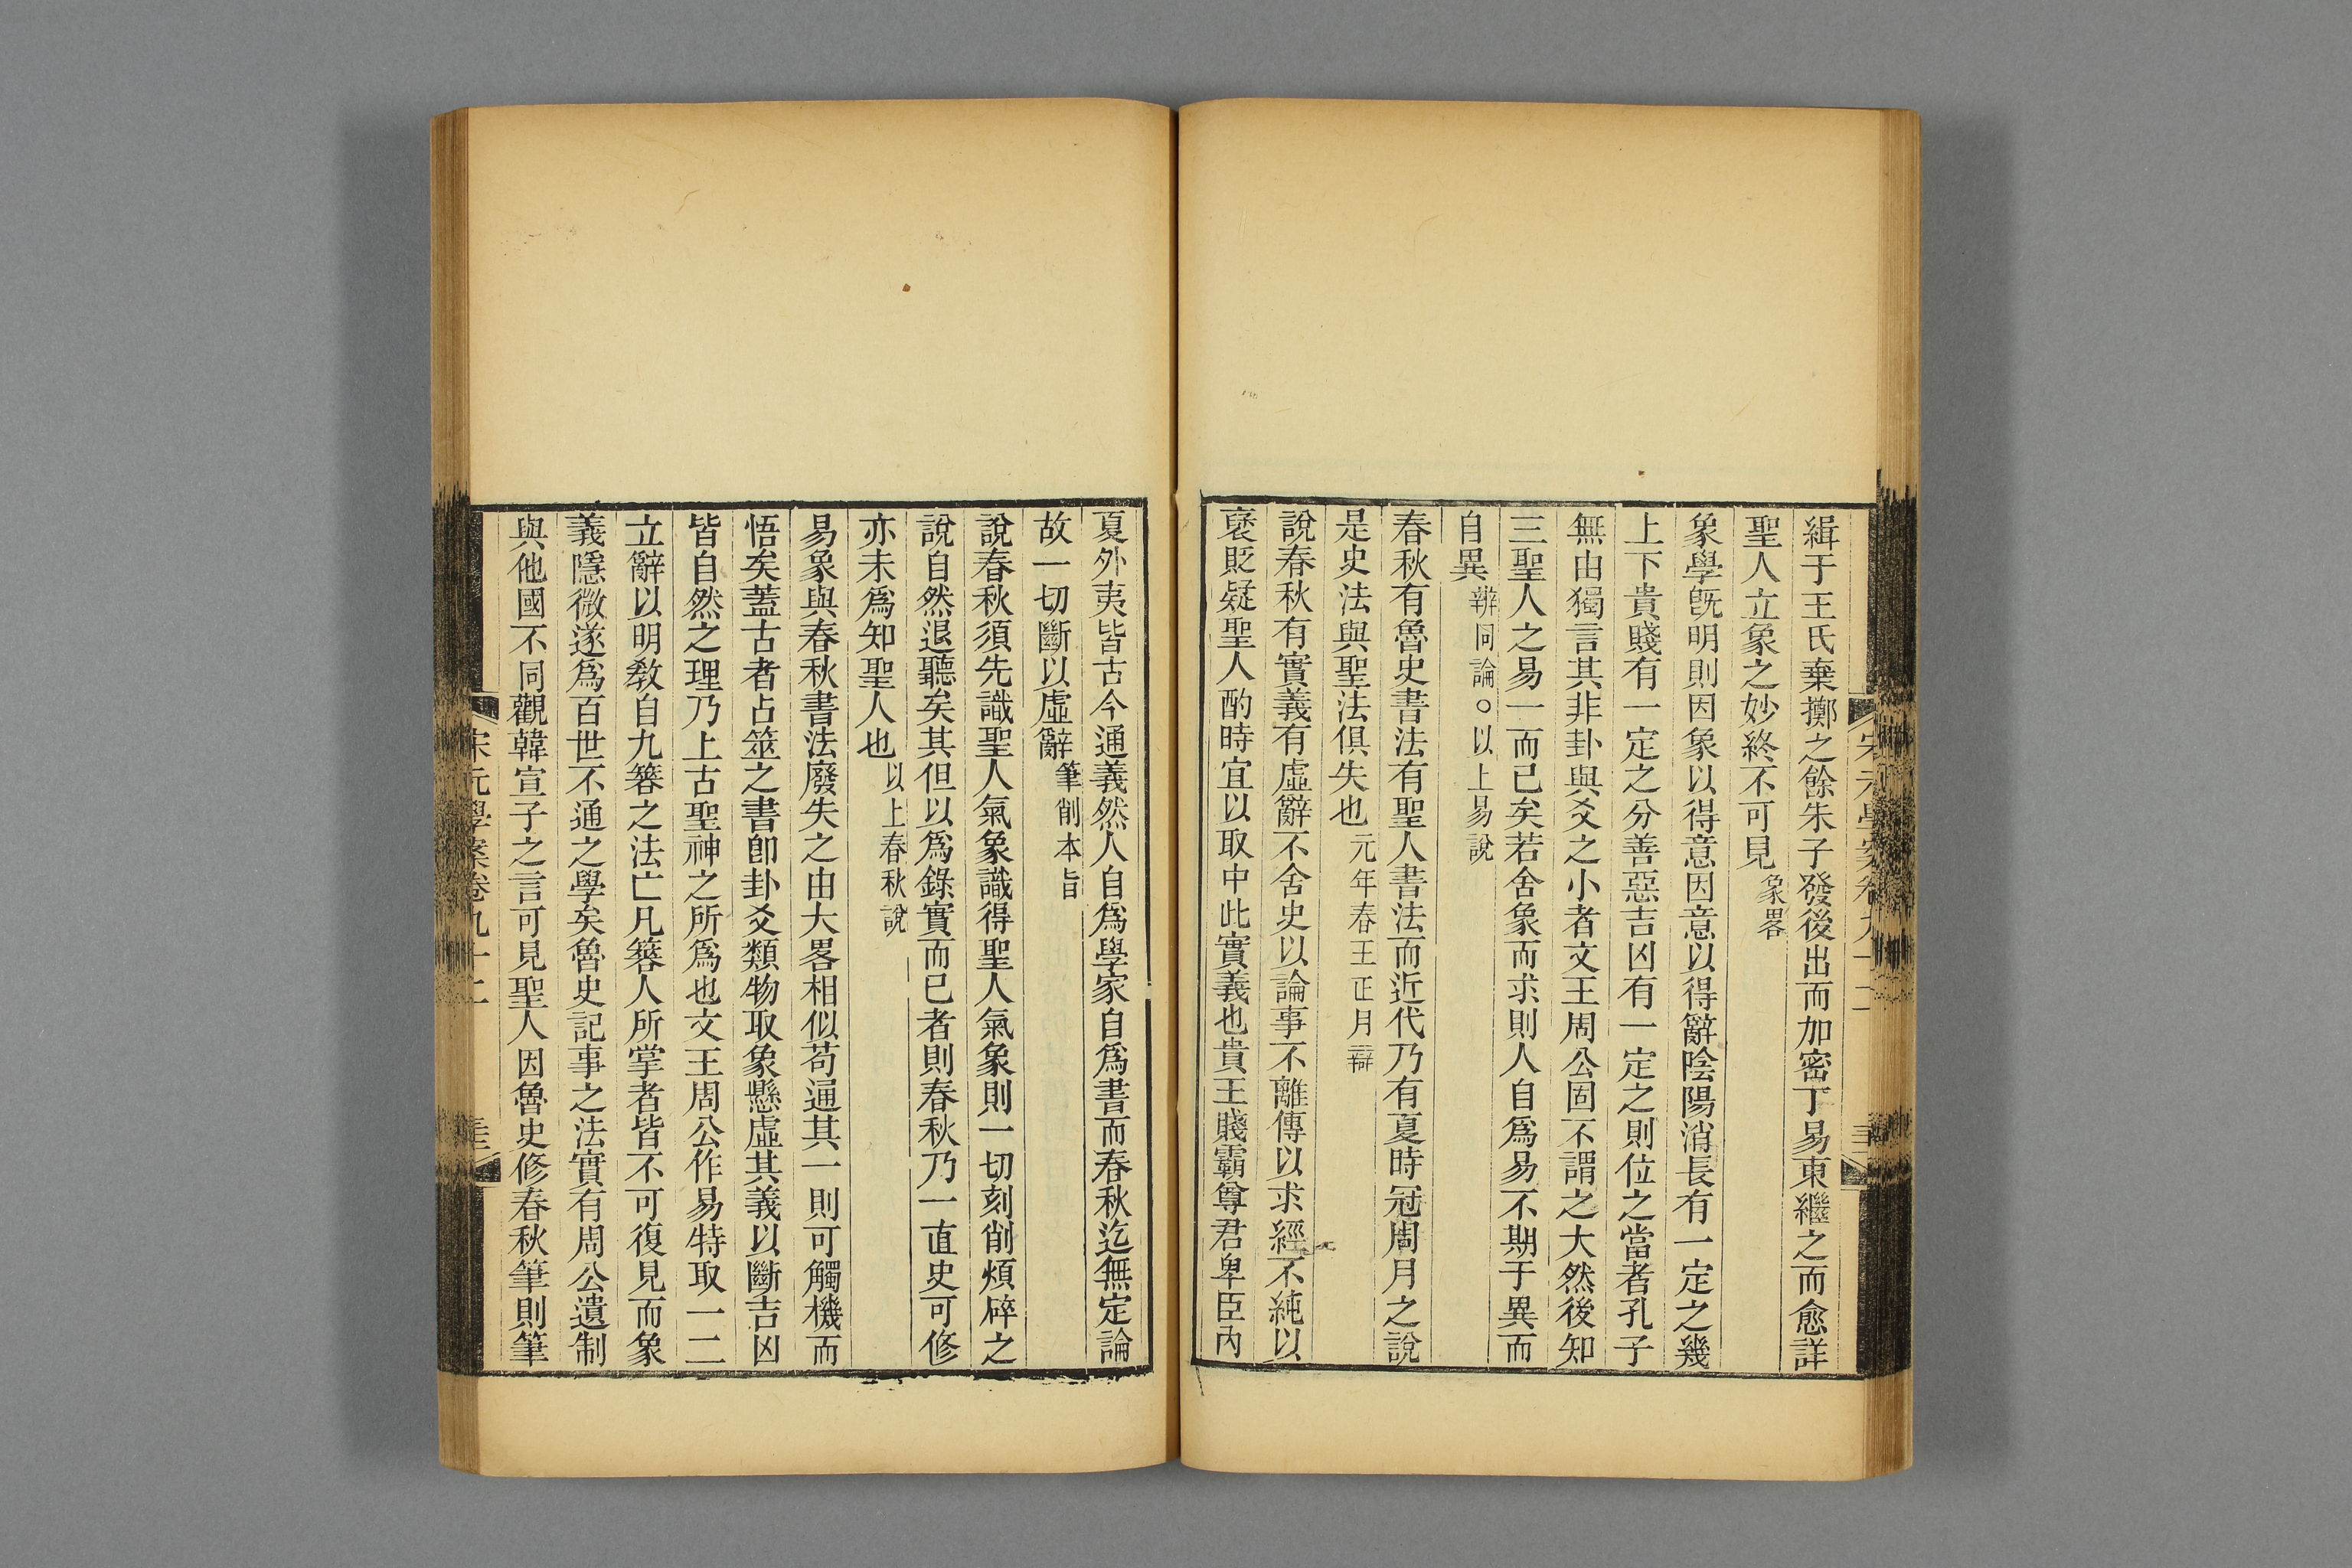 緝于王氏棄擲之餘朱子發後出而加密丁易東繼之而愈詳
聖人立象之妙終不可見象畧
象學旣明則因象以得意因意以得辭陰陽消長有一定之幾
上下貴賤有一定之分善惡吉凶有一定之則位之當者孔子
無由獨言其非卦與爻之小者文王周公固不謂之大然後知
三聖人之易一而已矣若舍象而求則人自爲易不期于異而
自異辨同論○以上易說
春秋有魯史書法有聖人書法而近代乃有夏時冠周月之說
是史法與聖法俱失也元年春王正月辯
說春秋有實義有虛辭不舍史以論事不離傳以求經不純以
褒貶疑聖人酌時宜以取中此實義也貴王賤霸尊君卑臣內
夏外夷皆古今通義然人自爲學家自爲書而春秋迄無定論
故一切斷以虛辭筆削本旨
說春秋須先識聖人氣象識得聖人氣象則一切刻削煩碎之
說自然退聽矣其但以爲錄實而已者則春秋乃一直史可修
亦未爲知聖人也以上春秋說
易象與春秋書法廢失之由大畧相似苟通其一則可觸機而
悟矣蓋古者占筮之書卽卦爻類物取象懸虛其義以斷吉凶
皆自然之理乃上古聖神之所爲也文王周公作易特取一二
立辭以明敎自九簭之法亡凡簭人所掌者皆不可復見而象
義隱微遂爲百世不通之學矣魯史記事之法實有周公遺制
與他國不同觀韓宣子之言可見聖人因魯史修春秋筆則筆
宋元學案卷九十二